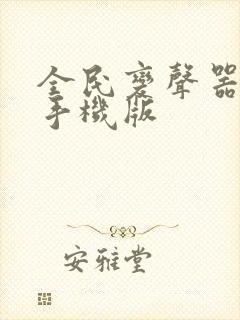 全民變聲器
手機版
安雅堂